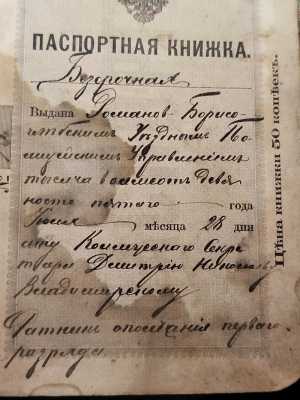 ПАСПОРТНАЯ КНИЖКА.
Безсрочная
Выдана Романов-Борисо-
глѣбскимъ Уѣзднымъ По-
лицейскимъ Управленіемъ
тысяча восемьсотъ девя-
носто пятого года
Іюля мѣсяца 28 дня
Коллежскаго Секре-
таря Дмитрію
Владимірскому
перваго
разряда
Цѣна книжки 50 копѣекъ.
№